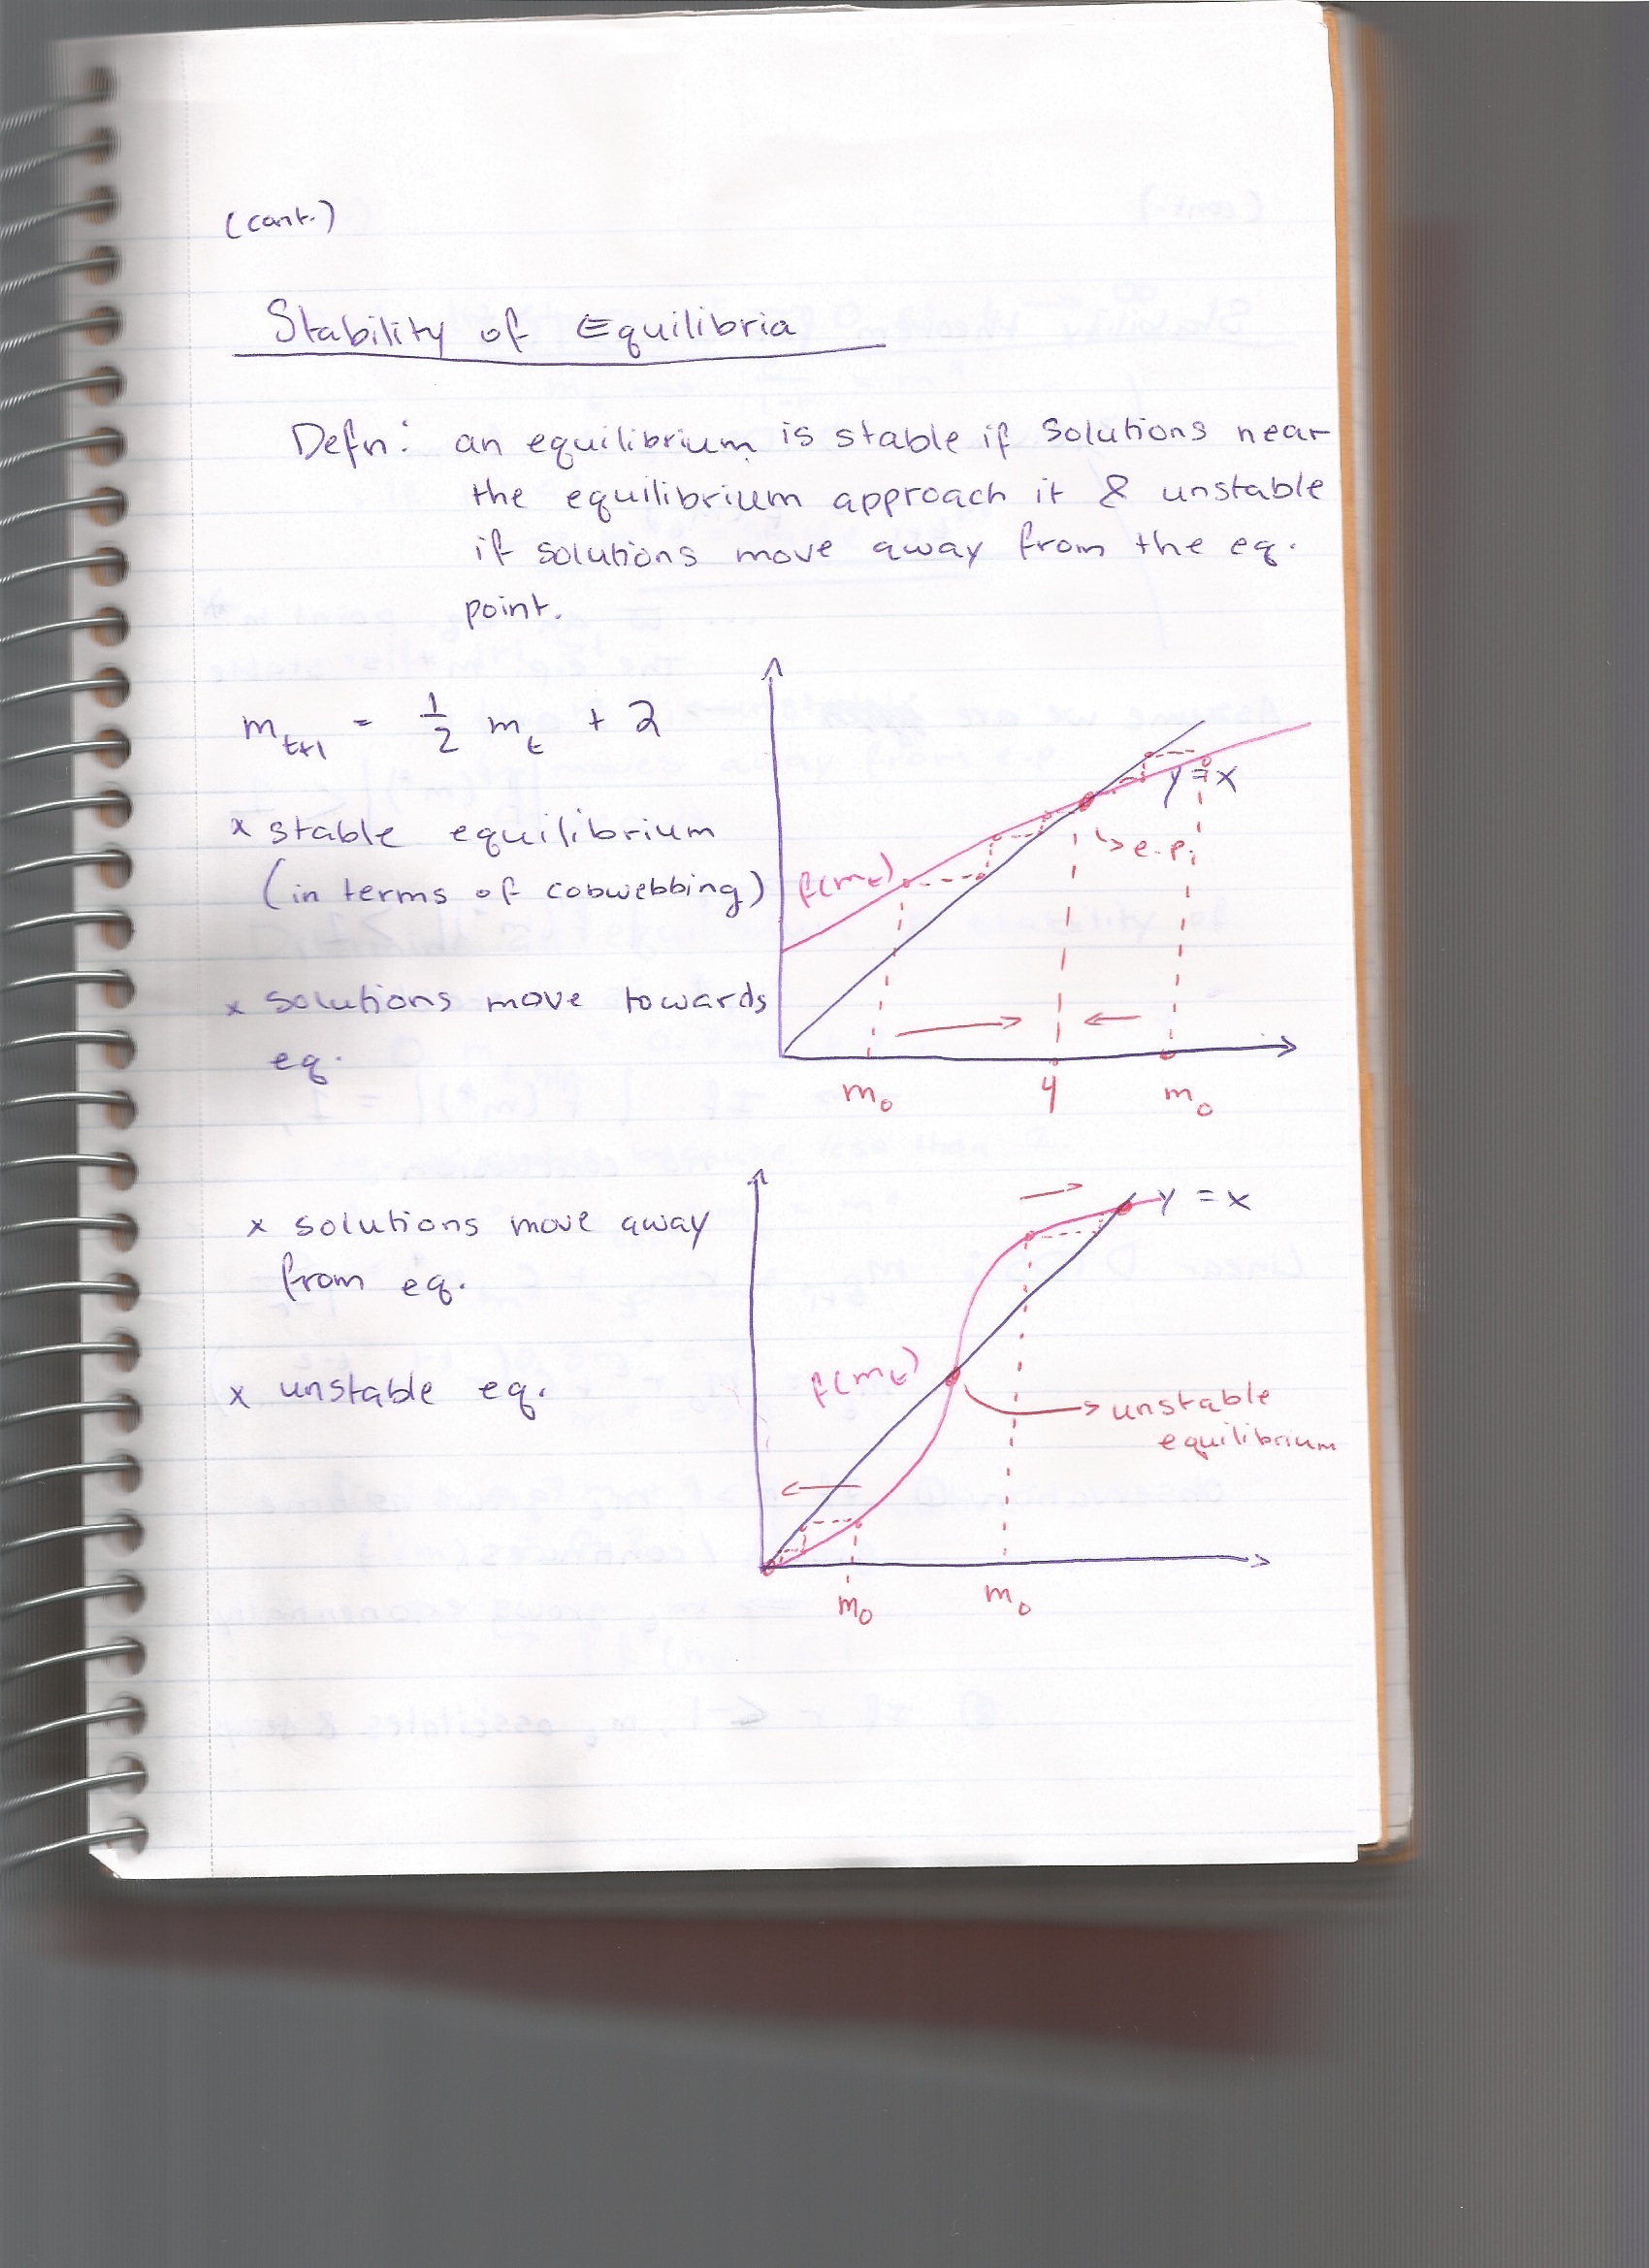 (cont.)
Stability of Equilibria
Defn: an equilibrium is stable if solutions near
the equilibrium approach it & unstable
if solutions move away from the eq.
point.
m_{t+1} = 1/2 m_t + 2
x stable equilibrium
(in terms of cobwebbing)
x solutions move towards
eq.
f(m_t)
y = x
e.p.
m_0
4
m_0
x solutions move away
from eq.
x unstable eq.
y = x
f(m_t)
unstable
equilibrium
m_0
m_0